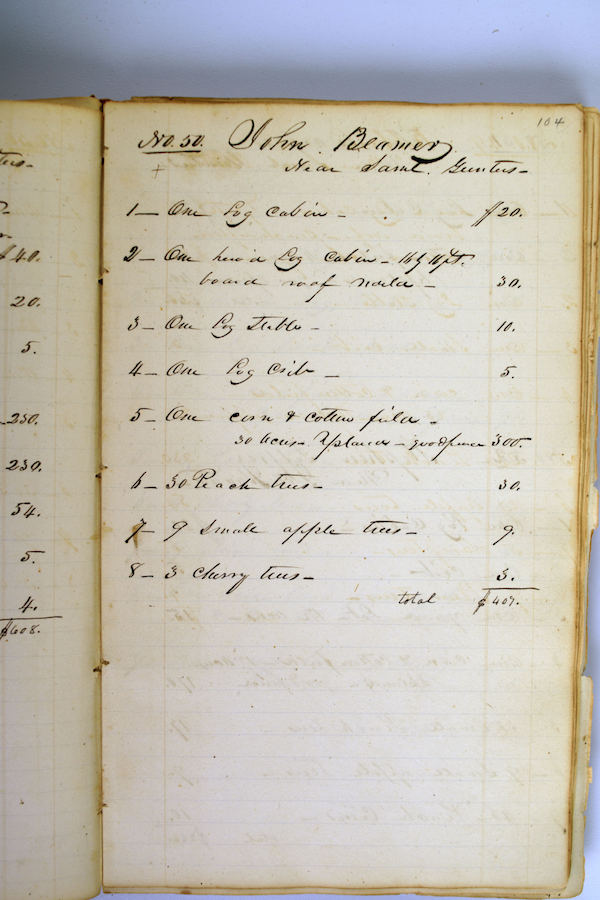 104
No. 50. John Beamer
Near Saml. Gunters-
1- One Log cabin - $20.
2- One hew'd Log Cabin - 16 by 14 ft.
board roof nail'd - 30.
3- One Log Stable - 10.
4- One Log Crib - 5.
5- One corn & cotton field -
30 Acres - Upland - good fence 300.
6- 30 Peach trees - 30.
7- 9 Small apple trees - 9.
8- 3 cherry trees - 3.
total $407.
$40.
20.
5.
250.
230.
54.
5.
4.
$608.